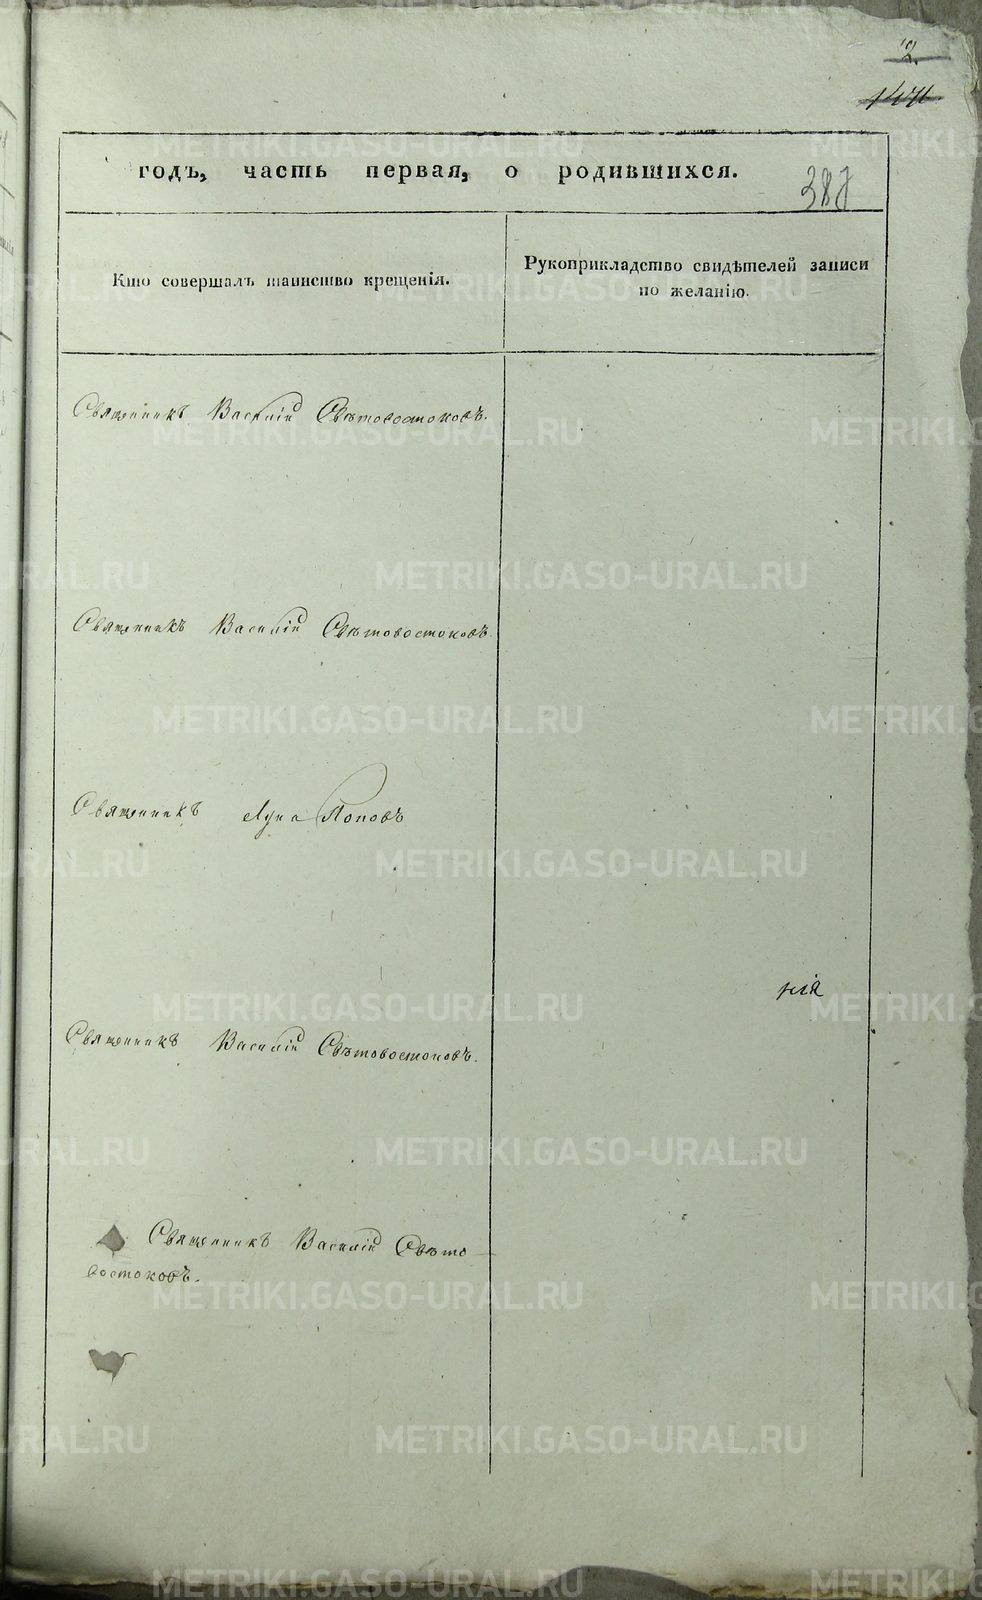 2.
387
годъ, часть первая, о родившихся.
Кто совершалъ таинство крещенія.
Рукоприкладство свидѣтелей записи
по желанію.
Священникъ Василій Свѣтовостоковъ.
Священникъ Василій Свѣтовостоковъ.
Священникъ Лука Поповъ
нія
Священникъ Василій Свѣтовостоковъ.
Священникъ Василій Свѣто
востоковъ.
METRIKI.GASO-URAL.RU